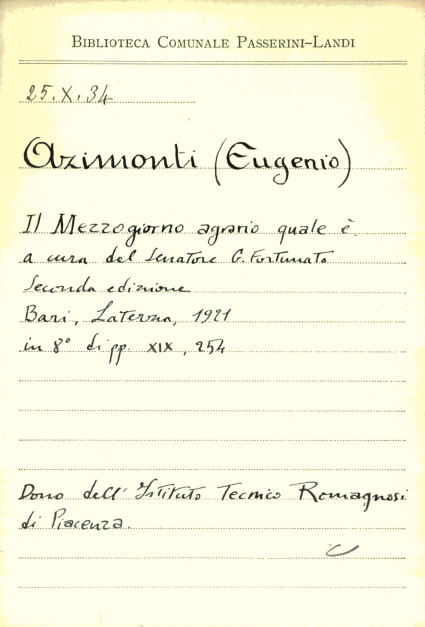 BIBLIOTECA COMUNALE PASSERINI-LANDI
25.X.34
Azimonti (Eugenio)
Il Mezzogiorno agrario quale è.
a cura del Senatore G. Fortunato
Seconda edizione
Bari, Laterza, 1921
in 8° di pp. XIX, 254
Dono dell'Istituto Tecnico Romagnosi
di Piacenza.